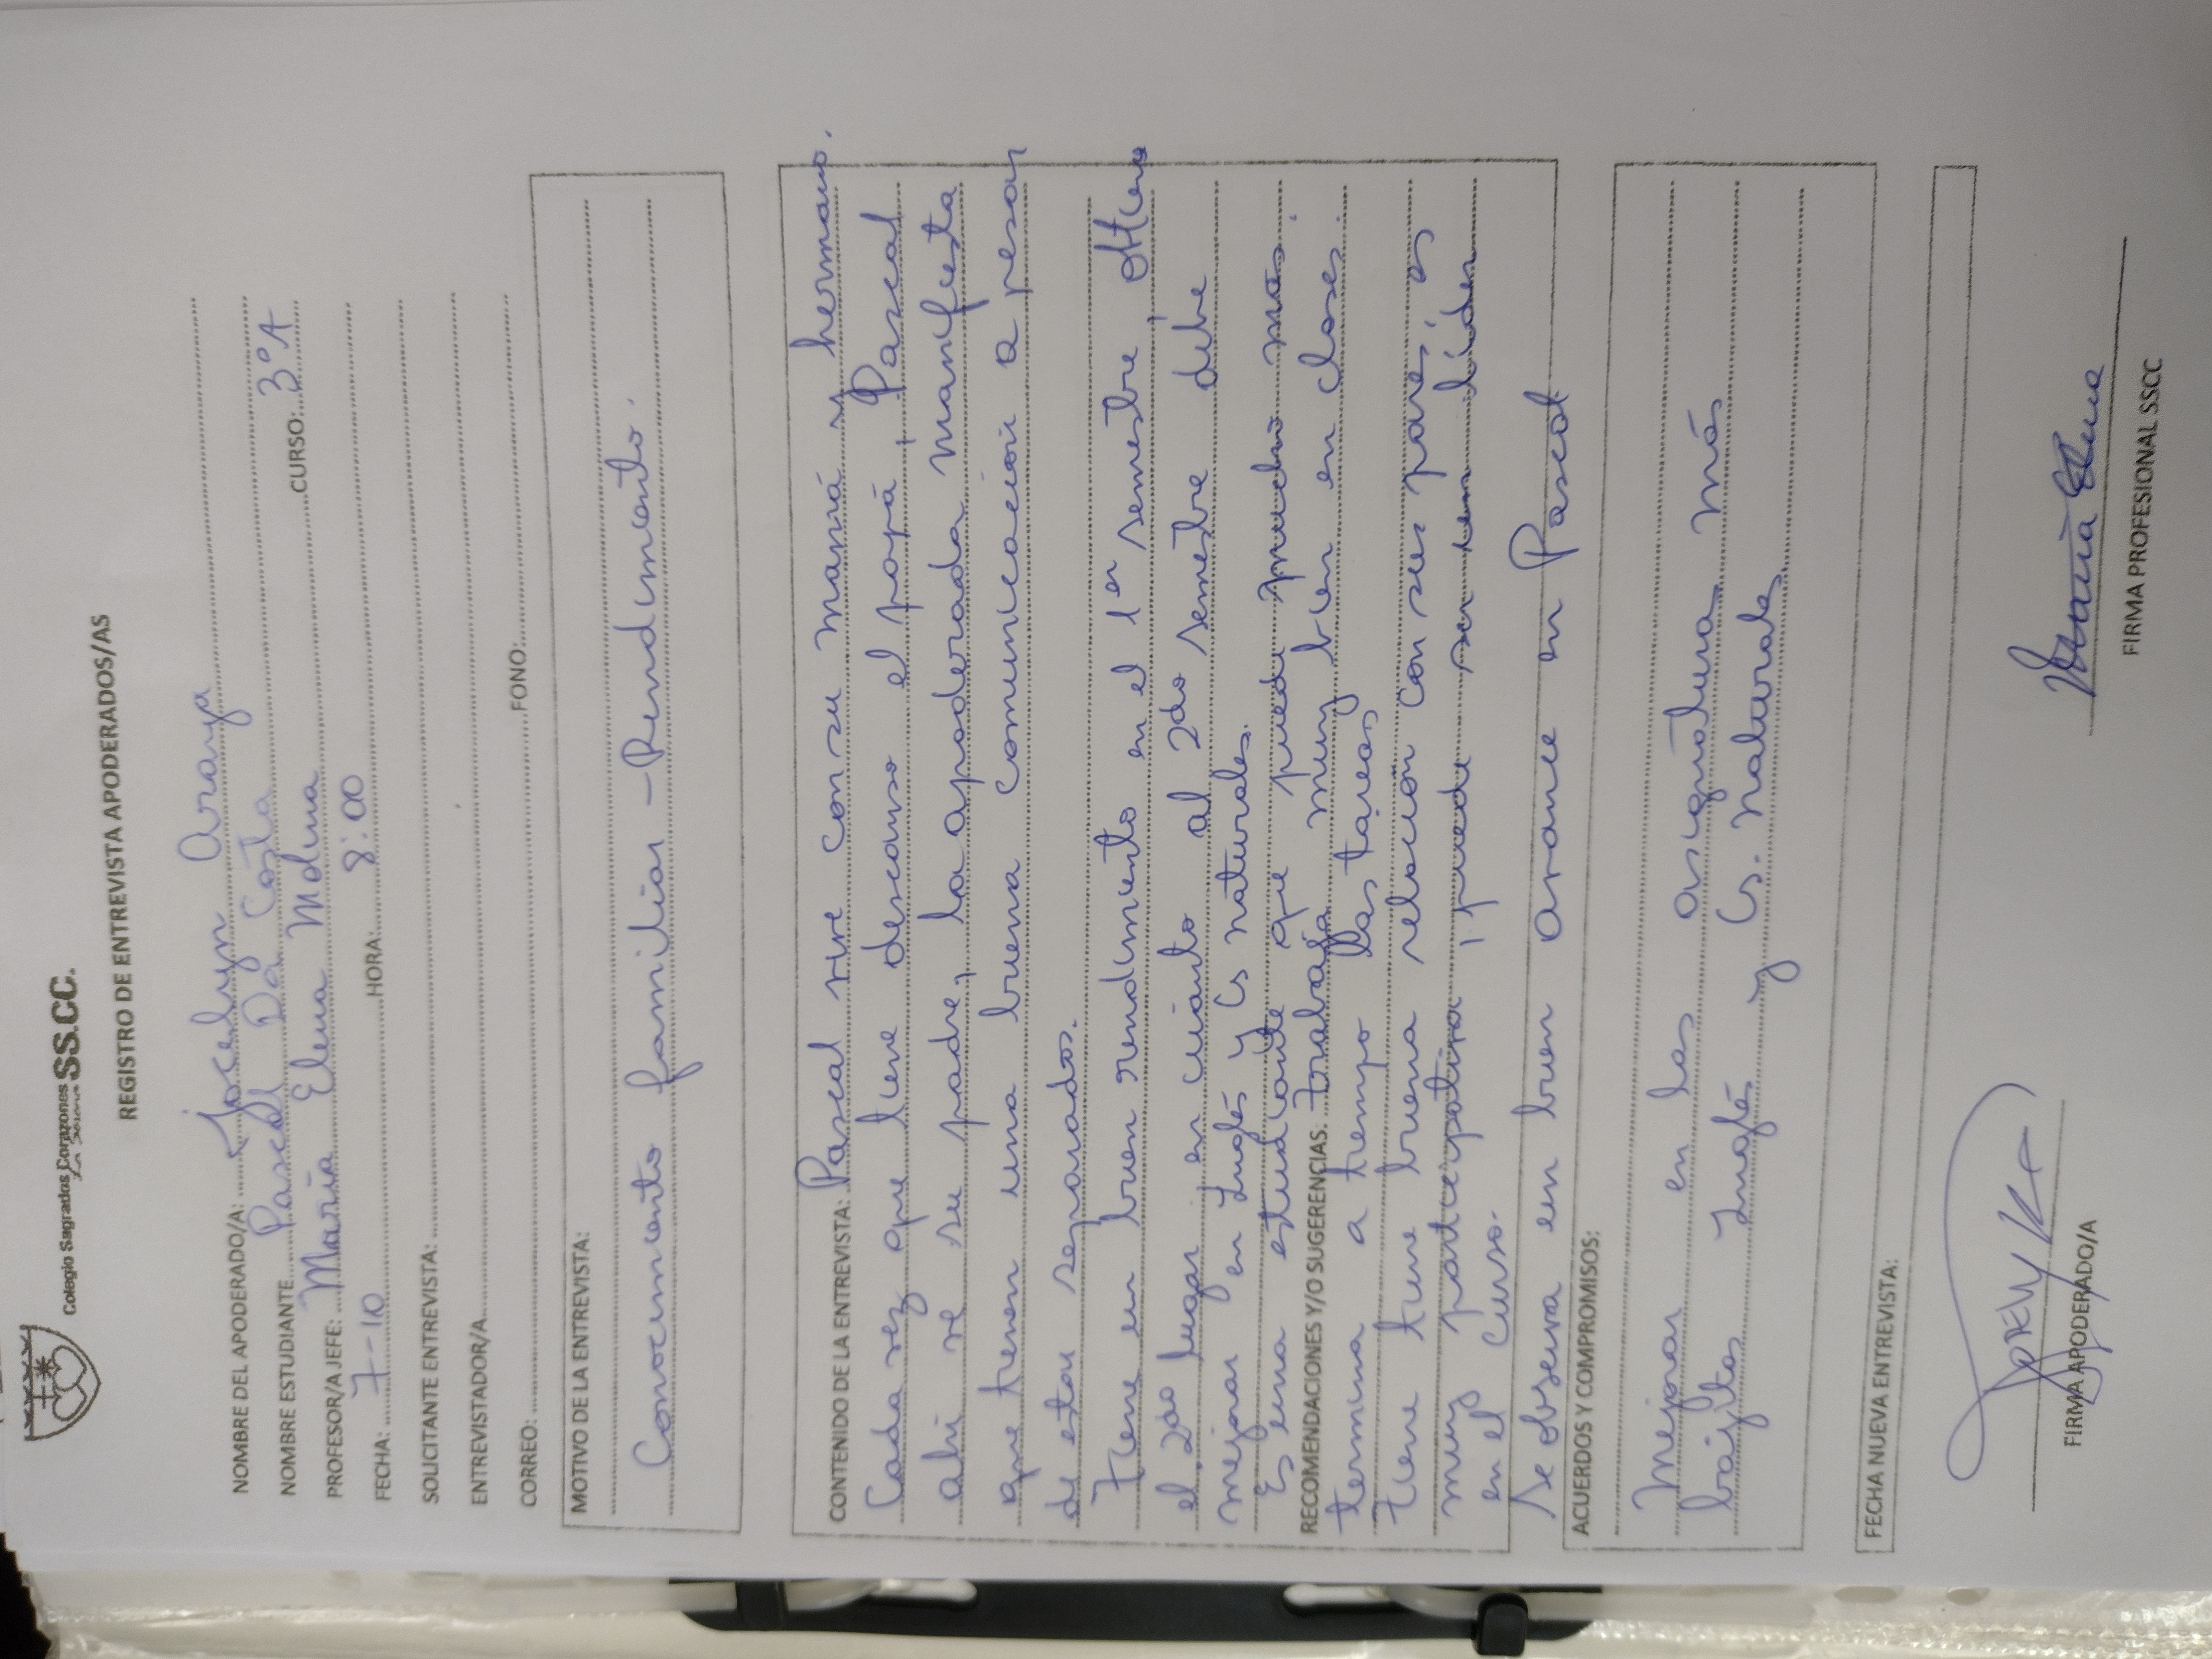 Colegio Sagrados Corazones SS.CC.
REGISTRO DE ENTREVISTA APODERADOS/AS
NOMBRE DEL APODERADO/A: Jocelyn Araya
NOMBRE ESTUDIANTE Pascal Da Costa CURSO: 3°A
PROFESOR/A JEFE: María Elena Molina
FECHA: 7-10 HORA: 8:00
SOLICITANTE ENTREVISTA:
ENTREVISTADOR/A
CORREO: FONO:
MOTIVO DE LA ENTREVISTA:
Conocimiento familiar - Rendimiento.
CONTENIDO DE LA ENTREVISTA: Pascal vive con su mamá y hermano.
Cada vez que tiene descanso el papá, Pascal
ahi ve su padre, la apoderada manifiesta
que tienen una buena comunicación a pesar
de estar separados.
Tiene un buen rendimiento en el 1er semestre, obtuvo
el 2do lugar en cuanto al 2do semestre debe
mejorar en Inglés y Cs naturales.
Es una estudiante que puede mucho más.
RECOMENDACIONES Y/O SUGERENCIAS: trabaja muy bien en clases.
termina a tiempo las tareas
tiene buena relación con sus pares, es
muy participativa, puede ser un líder
en el curso.
Se observa en buen avance en Pascal
ACUERDOS Y COMPROMISOS:
Mejorar en las asignatura más
bajitas Inglés y Cs. Naturales
FECHA NUEVA ENTREVISTA:
FIRMA APODERADO/A
María Elena
FIRMA PROFESIONAL SSCC